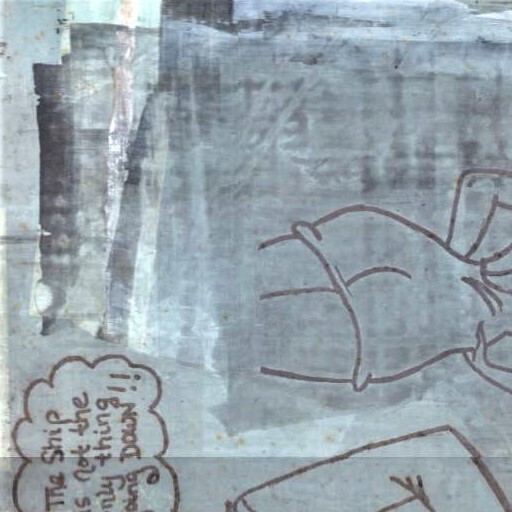 The Ship
is not the
only thing
going DOWN!!